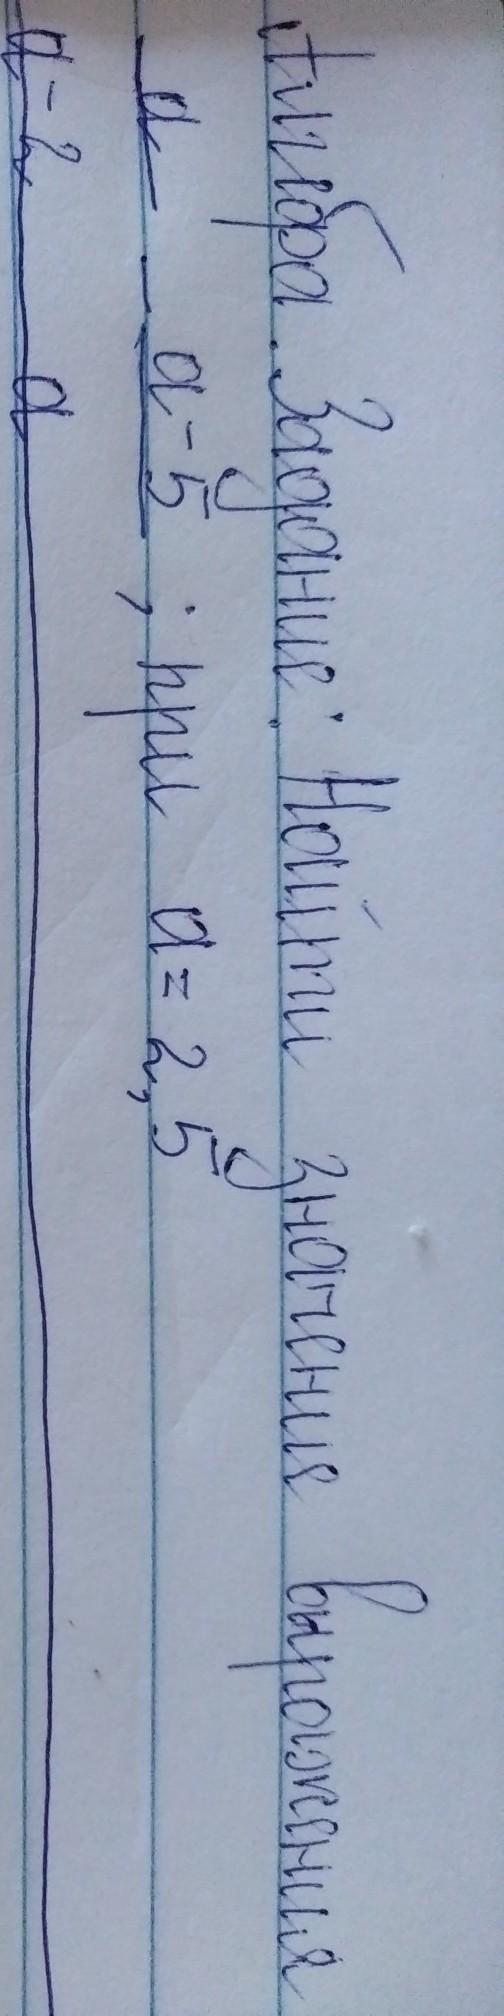 Алгебра. Задание: Найти значение выражения
a - a-5 ; при a = 2,5
a-2 a